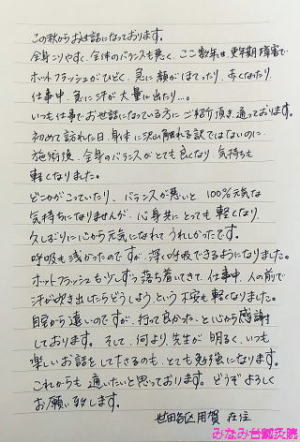 この秋からお世話になっております。
全身こりやすく、全体のバランスも悪く、ここ数年は更年期障害で
ホットフラッシュがひどく、急に顔がほてったり、赤くなったり、
仕事中、急に汗が大量に出たり…。
いつも仕事でお世話になっている方にご紹介頂き、通っております。
初めて訪れた日、身体に沢山触れる訳ではないのに、
施術後、全身のバランスがとても良くなり、気持ちも
軽くなりました。
どこかがこっていたり、バランスが悪いと 100%元気な
気持ちになりませんが、心身共にとっても軽くなり、
久しぶりに心から元気になれてうれしかったです。
呼吸も浅かったのですが、深い呼吸できるようになりました。
ホットフラッシュも少しずつ落ち着いてきて、仕事中、人の前で
汗が吹き出したらどうしようという不安も軽くなりました。
自宅から遠いのですが、行って良かったと心から感謝
しております。そして、何より先生が明るく、いつも
楽しいお話をして下さるのも、とても勉強になります。
これからも通いたいと思っております。どうぞよろしく
お願い致します。
世田谷区用賀 在住
みなみ台鍼灸院